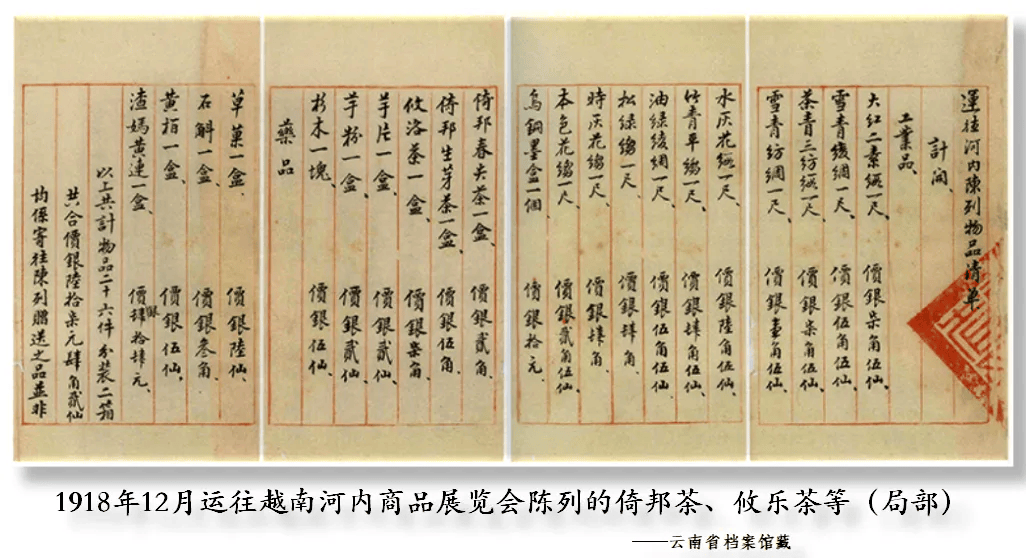 運往河内陳列物品清单
計開
工業品
大红二素緞一尺、價銀柒角伍仙
雪青緩綢一尺、價銀伍角伍仙
茶青三纺緞一尺、價銀柒角伍仙
雪青纺綢一尺、價銀壹角伍仙
水灰花緞一尺、價銀陸角伍仙
竹青平縐一尺、價銀肆角伍仙
油绿綾綢一尺、價銀伍角伍仙
松绿縐一尺、價銀肆角
時灰花縐一尺、價銀肆角
本色花縐一尺、價銀貳角伍仙
烏銅墨盒一個、價銀拾元、
倚邦春尖茶一盒、價銀貳角、
倚邦生芽茶一盒、價銀伍角
攸洛茶一盒、價銀柒角
芋片一盒、價銀貳仙、
芋粉一盒、價銀貳仙、
杉木一塊、價銀伍仙、
藥品
草菓一盒、價銀陸仙、
石斛一盒、價銀叁角、
黄栢一盒、價銀伍仙、
渣嫣黄連一盒、價銀肆拾肆元、
以上共計物品二十六件分装二箱
共合價銀陸拾柒元肆角貳仙
均係寄往陳列贈送之品並非
1918年12月运往越南河内商品展览会陈列的倚邦茶、攸乐茶等（局部）
——云南省档案馆藏